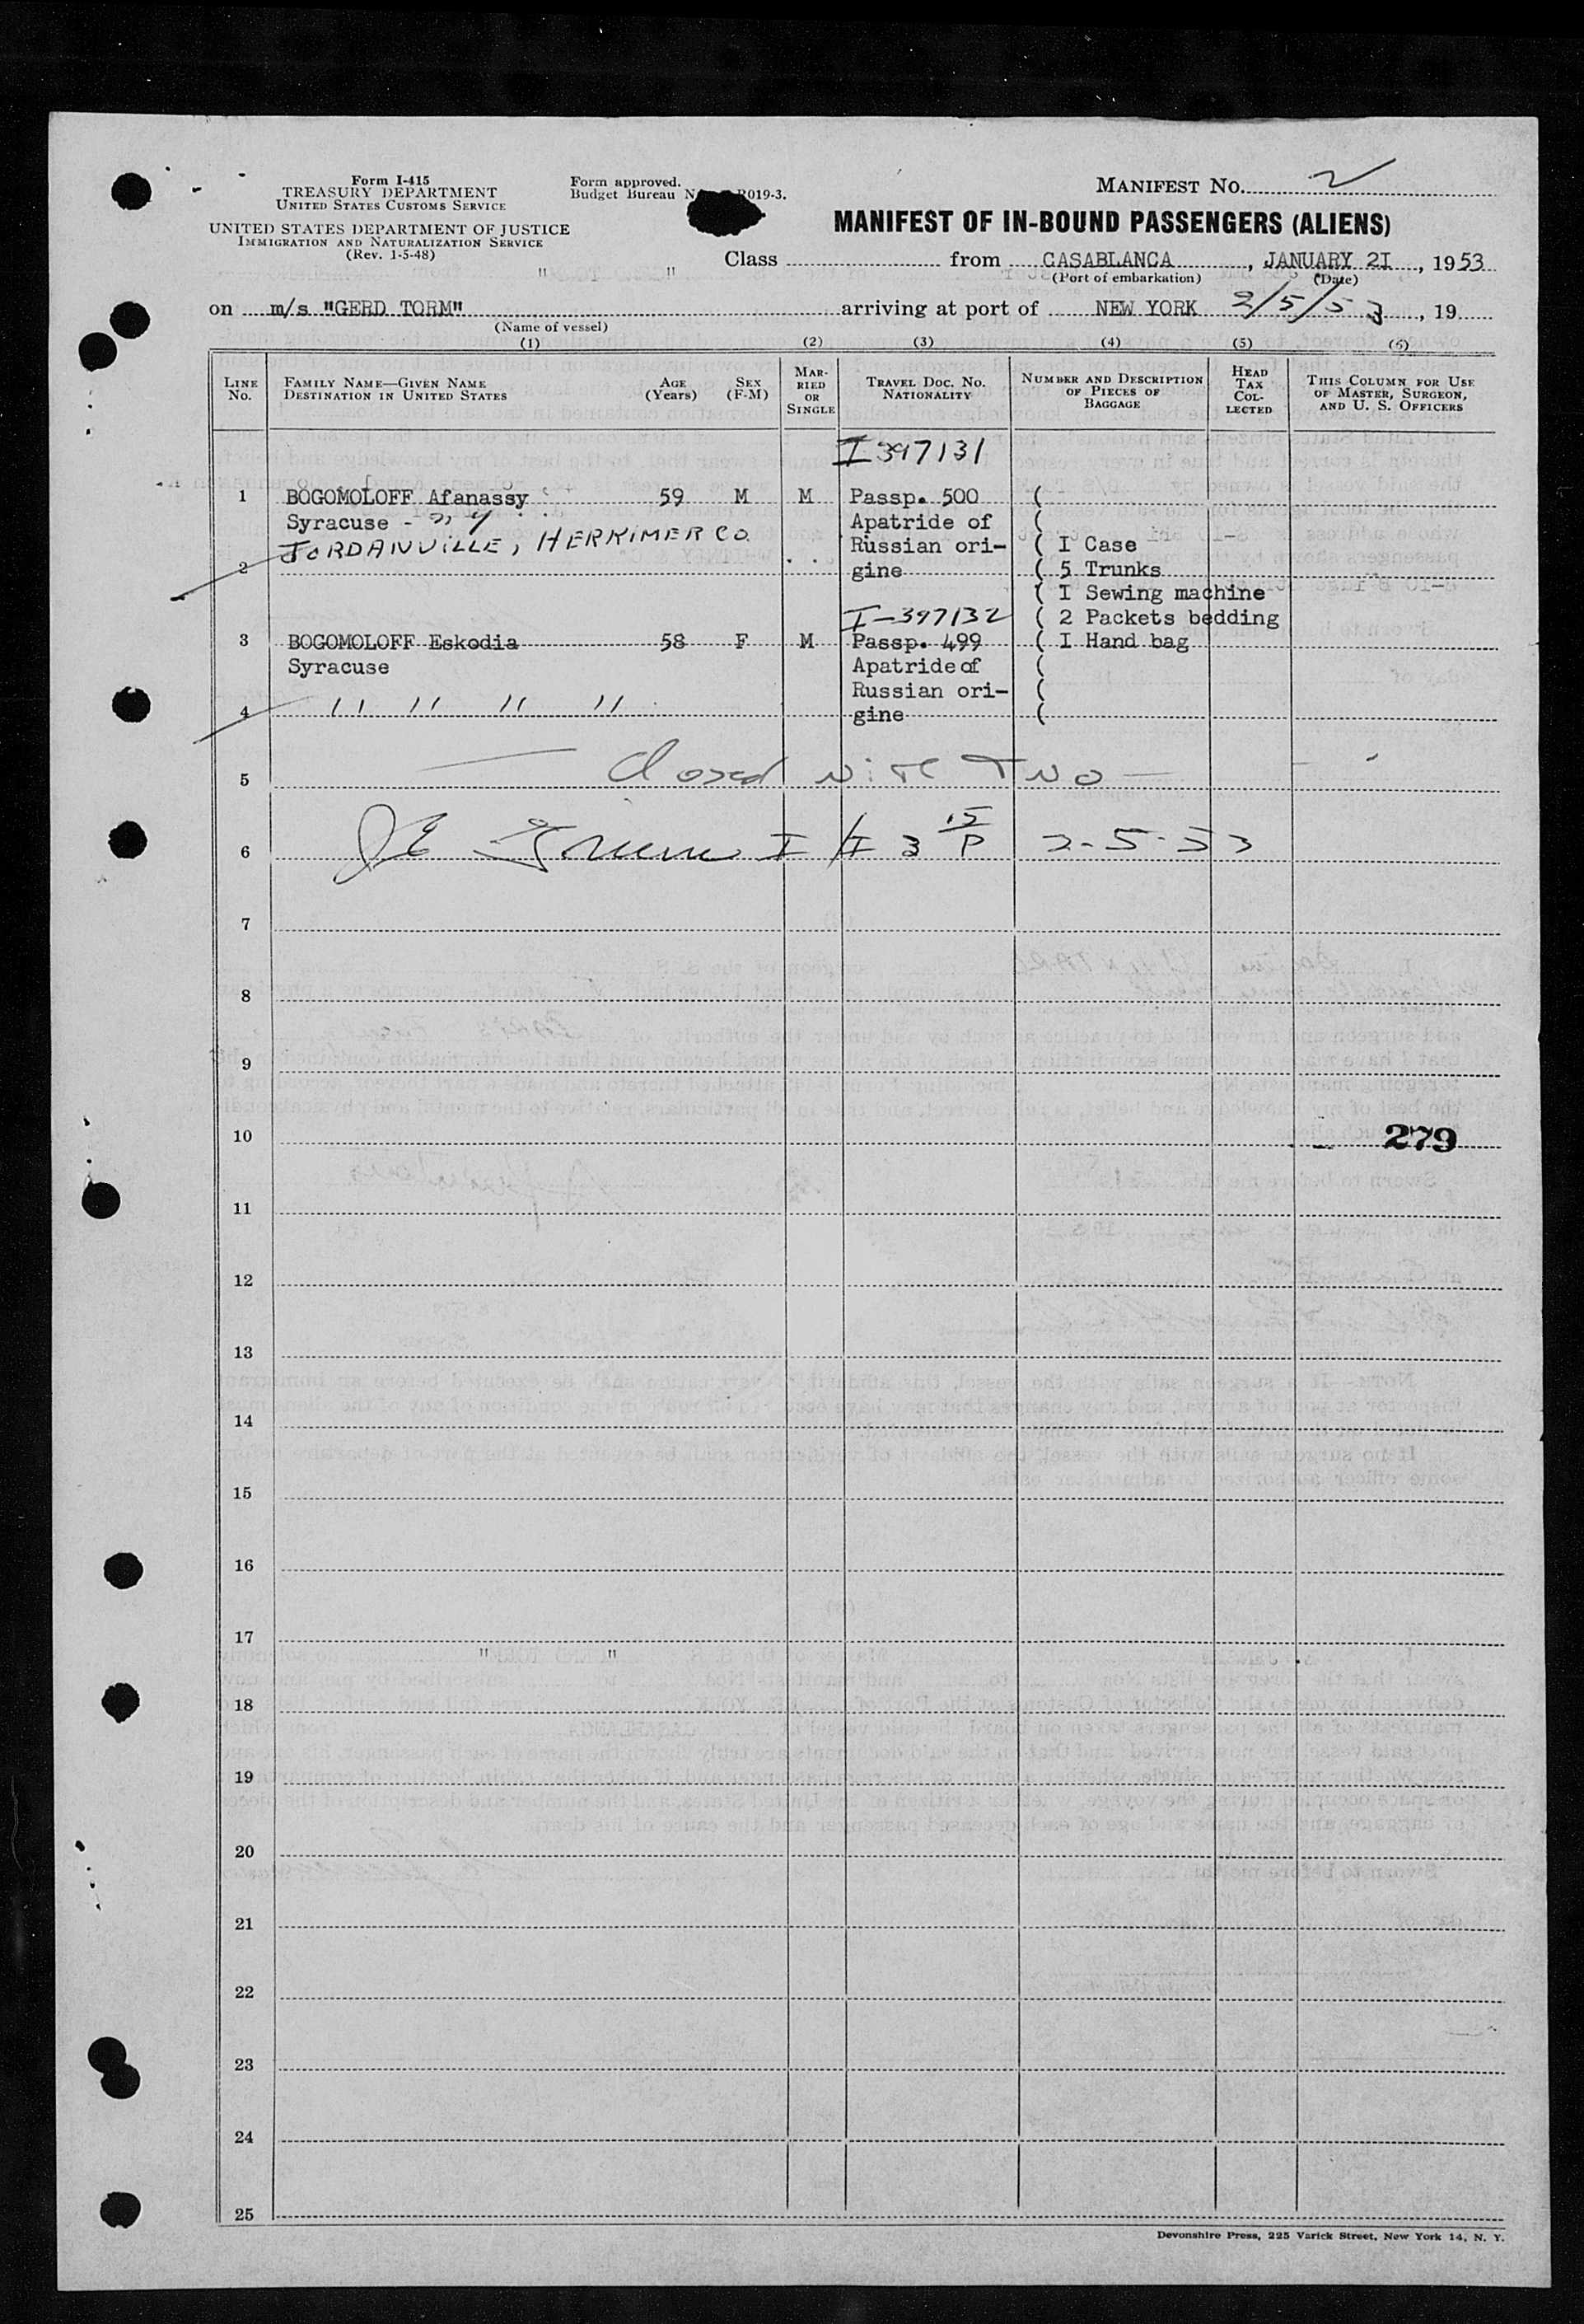 Form I-415
TREASURY DEPARTMENT
UNITED STATES CUSTOMS SERVICE
UNITED STATES DEPARTMENT OF JUSTICE
IMMIGRATION AND NATURALIZATION SERVICE
(Rev. 1-5-48)
Form approved.
Budget Bureau R019-3.
MANIFEST NO. 2
MANIFEST OF IN-BOUND PASSENGERS (ALIENS)
" " Class from CASABLANCA, JANUARY 2I, 1953
(Port of embarkation) (Date)
on m/s "GERD TORM" arriving at port of NEW YORK 2/5/53, 19
(Name of vessel)
(1) (2) (3) (4) (5) (6)
LINE No.
FAMILY NAME—GIVEN NAME
DESTINATION IN UNITED STATES
AGE (Years)
SEX (F-M)
MARRIED OR SINGLE
TRAVEL DOC. NO.
NATIONALITY
NUMBER AND DESCRIPTION OF PIECES OF BAGGAGE
HEAD TAX COLLECTED
THIS COLUMN FOR USE OF MASTER, SURGEON, AND U. S. OFFICERS
I 397131
1 BOGOMOLOFF Afanassy 59 M M Passp. 500 (
Syracuse - N Y Apatride of (
JORDANVILLE, HERKIMER CO. Russian ori- ( I Case
2 gine ( 5 Trunks
( I Sewing machine
I-397132 ( 2 Packets bedding
3 BOGOMOLOFF Eskodia 58 F M Passp. 499 ( I Hand bag
Syracuse Apatride of (
Russian ori- (
4 " " " " gine (
5 Closed with Two
6 J E Greene I/I 3 15/P 2-5-53
7
8
9
10 279
11
12
13
14
15
16
17
18
19
20
21
22
23
24
25
Devonshire Press, 225 Varick Street, New York 14, N. Y.